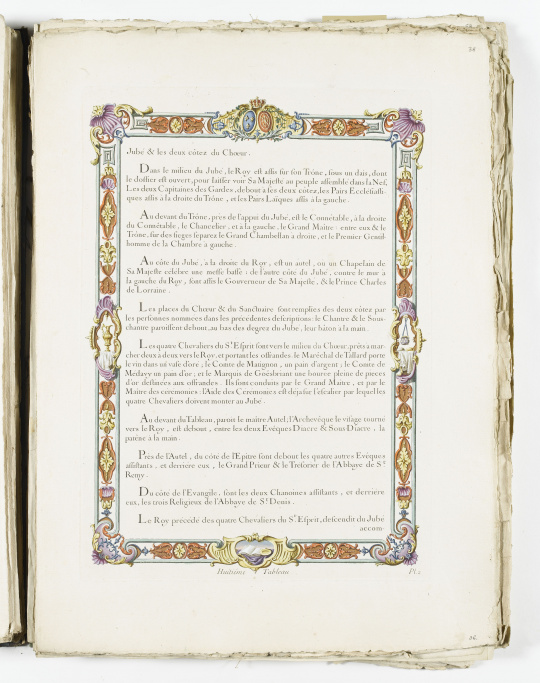 34
Jubé & les deux côtez du Chœur.
Dans le milieu du Jubé, le Roy est assis sur son Trône, sous un dais, dont
le dossier est ouvert, pour laisser voir Sa Majesté au peuple assemblé dans la Nef,
Les deux Capitaines des Gardes, debout à ses deux côtez, les Pairs Ecclésiasti-
ques assis à la droite du Trône, et les Pairs Laïques assis à la gauche.
Au devant du Trône, près de l'appui du Jubé, est le Connétable, à la droite
du Connétable, le Chancelier, et à la gauche, le Grand Maître: entre eux & le
Trône, sur des sieges séparez le Grand Chambellan à droite, et le Premier Gentil-
homme de la Chambre à gauche.
Au côté du Jubé, à la droite du Roy, est un autel, où un Chapelain de
Sa Majesté célèbre une messe basse: de l'autre côté du Jubé, contre le mur à
la gauche du Roy, sont assis le Gouverneur de Sa Majesté, & le Prince Charles
de Lorraine.
Les places du Chœur & du Sanctuaire sont remplies des deux côtez par
les personnes nommées dans les précédentes descriptions: le Chantre & le Sous-
chantre paroissent debout, au bas des degrez du Jubé, leur bâton à la main.
Les quatre Chevaliers du St. Esprit sont vers le milieu du Chœur, prêts à mar-
cher deux à deux vers le Roy, et portant les offrandes: le Maréchal de Tallard porte
le vin dans un vase doré; le Comte de Matignon, un pain d'argent; le Comte de
Médavy un pain d'or; et le Marquis de Goësbriant une bourse pleine de pieces
d'or destinées aux offrandes. Ils sont conduits par le Grand Maître, et par le
Maître des cérémonies: l'Aide des Cérémonies est déja sur l'escalier par lequel les
quatre Chevaliers doivent monter au Jubé.
Au devant du Tableau, paroit le maître Autel; l'Archevêque le visage tourné
vers le Roy, est debout, entre les deux Evêques Diacre & Sous Diacre, la
patène à la main.
Près de l'Autel, du côté de l'Epitre sont debout les quatre autres Evêques
assistants, et derriere eux, le Grand Prieur & le Trésorier de l'Abbaye de St.
Remy.
Du côté de l'Evangile, sont les deux Chanoines assistants, et derriere
eux, les trois Religieux de l'Abbaye de St. Denis.
Le Roy précédé des quatre Chevaliers du St. Esprit, descendit du Jubé
accom-
Huitième Tableau
Pl. 2